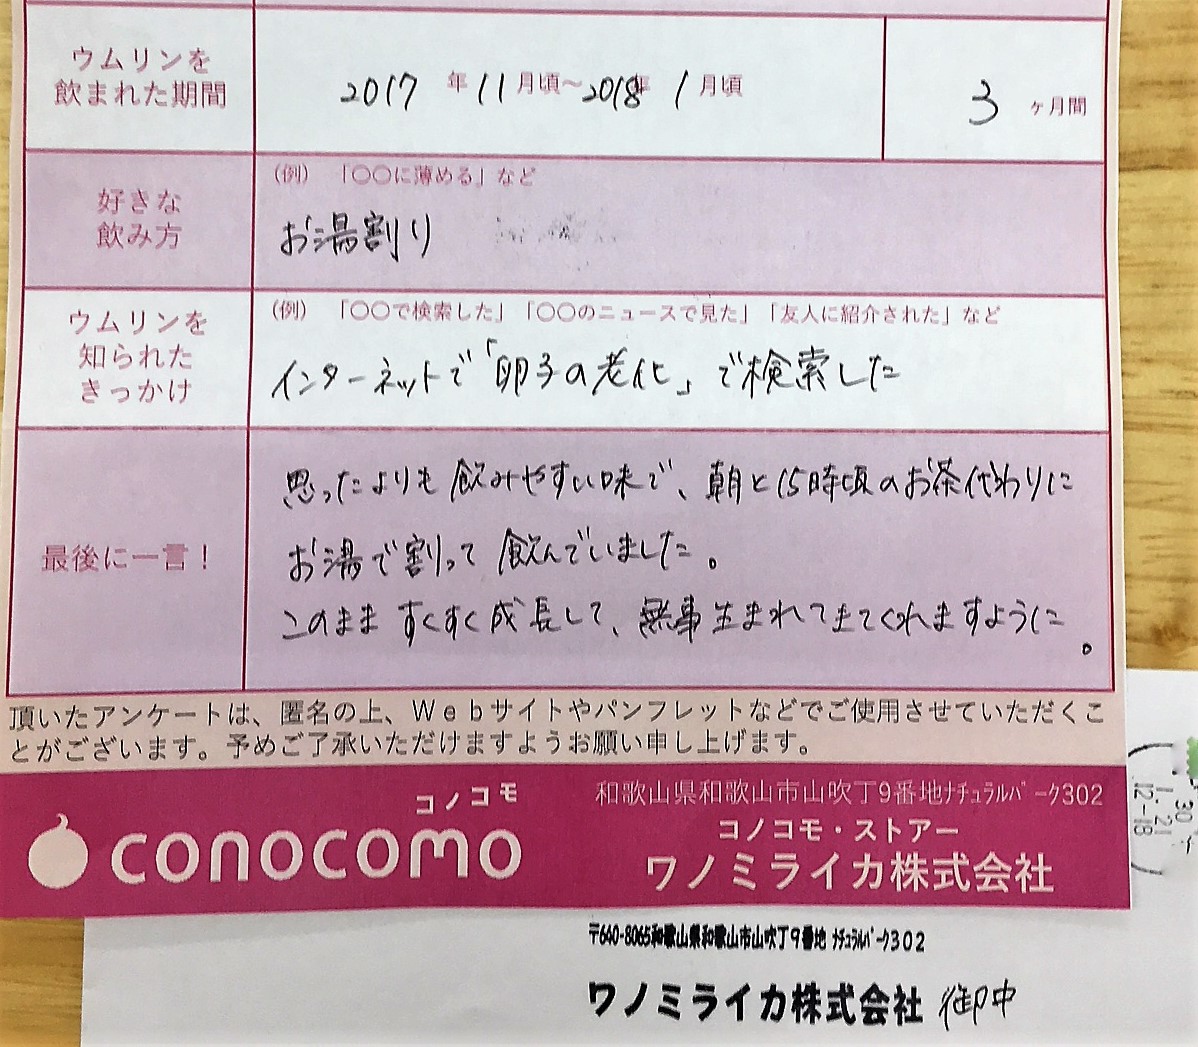 ウムリンを
飲まれた期間
2017 年 11 月頃～2018年 1 月頃
3 ヶ月間
好きな
飲み方
（例） 「〇〇に薄める」など
お湯割り
ウムリンを
知られた
きっかけ
（例） 「〇〇で検索した」「〇〇のニュースで見た」「友人に紹介された」など
インターネットで「卵子の老化」で検索した
最後に一言！
思ったよりも飲みやすい味で、朝と15時頃のお茶代わりに
お湯で割って飲んでいました。
このまますくすく成長して、無事生まれてきてくれますように。
頂いたアンケートは、匿名の上、Ｗｅｂサイトやパンフレットなどでご使用させていただくこ
とがございます。予めご了承いただけますようお願い申し上げます。
コノコモ
conocomo
和歌山県和歌山市山吹丁9番地ﾅﾁｭﾗﾙﾊﾟｰｸ302
コノコモ・ストアー
ワノミライカ株式会社
30
1.21
12-18
〒640-8065和歌山県和歌山市山吹丁9番地 ﾅﾁｭﾗﾙﾊﾟｰｸ302
ワノミライカ株式会社 御中